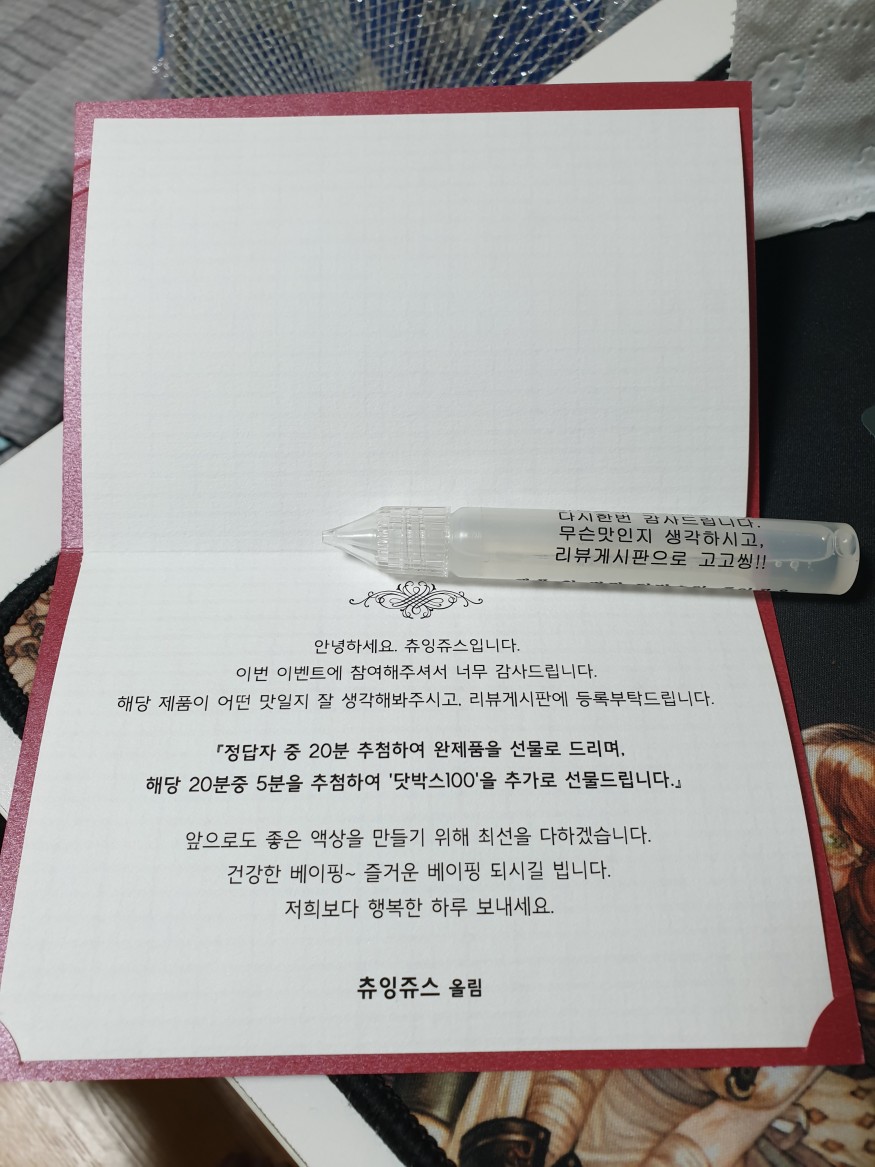 다시한번 감사드립니다.
무슨맛인지 생각하시고,
리뷰게시판으로 고고씽!!
안녕하세요. 츄잉쥬스입니다.
이번 이벤트에 참여해주셔서 너무 감사드립니다.
해당 제품이 어떤 맛일지 잘 생각해봐주시고, 리뷰게시판에 등록부탁드립니다.
『정답자 중 20분 추첨하여 완제품을 선물로 드리며,
해당 20분중 5분을 추첨하여 '닷박스100'을 추가로 선물드립니다.』
앞으로도 좋은 액상을 만들기 위해 최선을 다하겠습니다.
건강한 베이핑~ 즐거운 베이핑 되시길 빕니다.
저희보다 행복한 하루 보내세요.
츄잉쥬스 올림